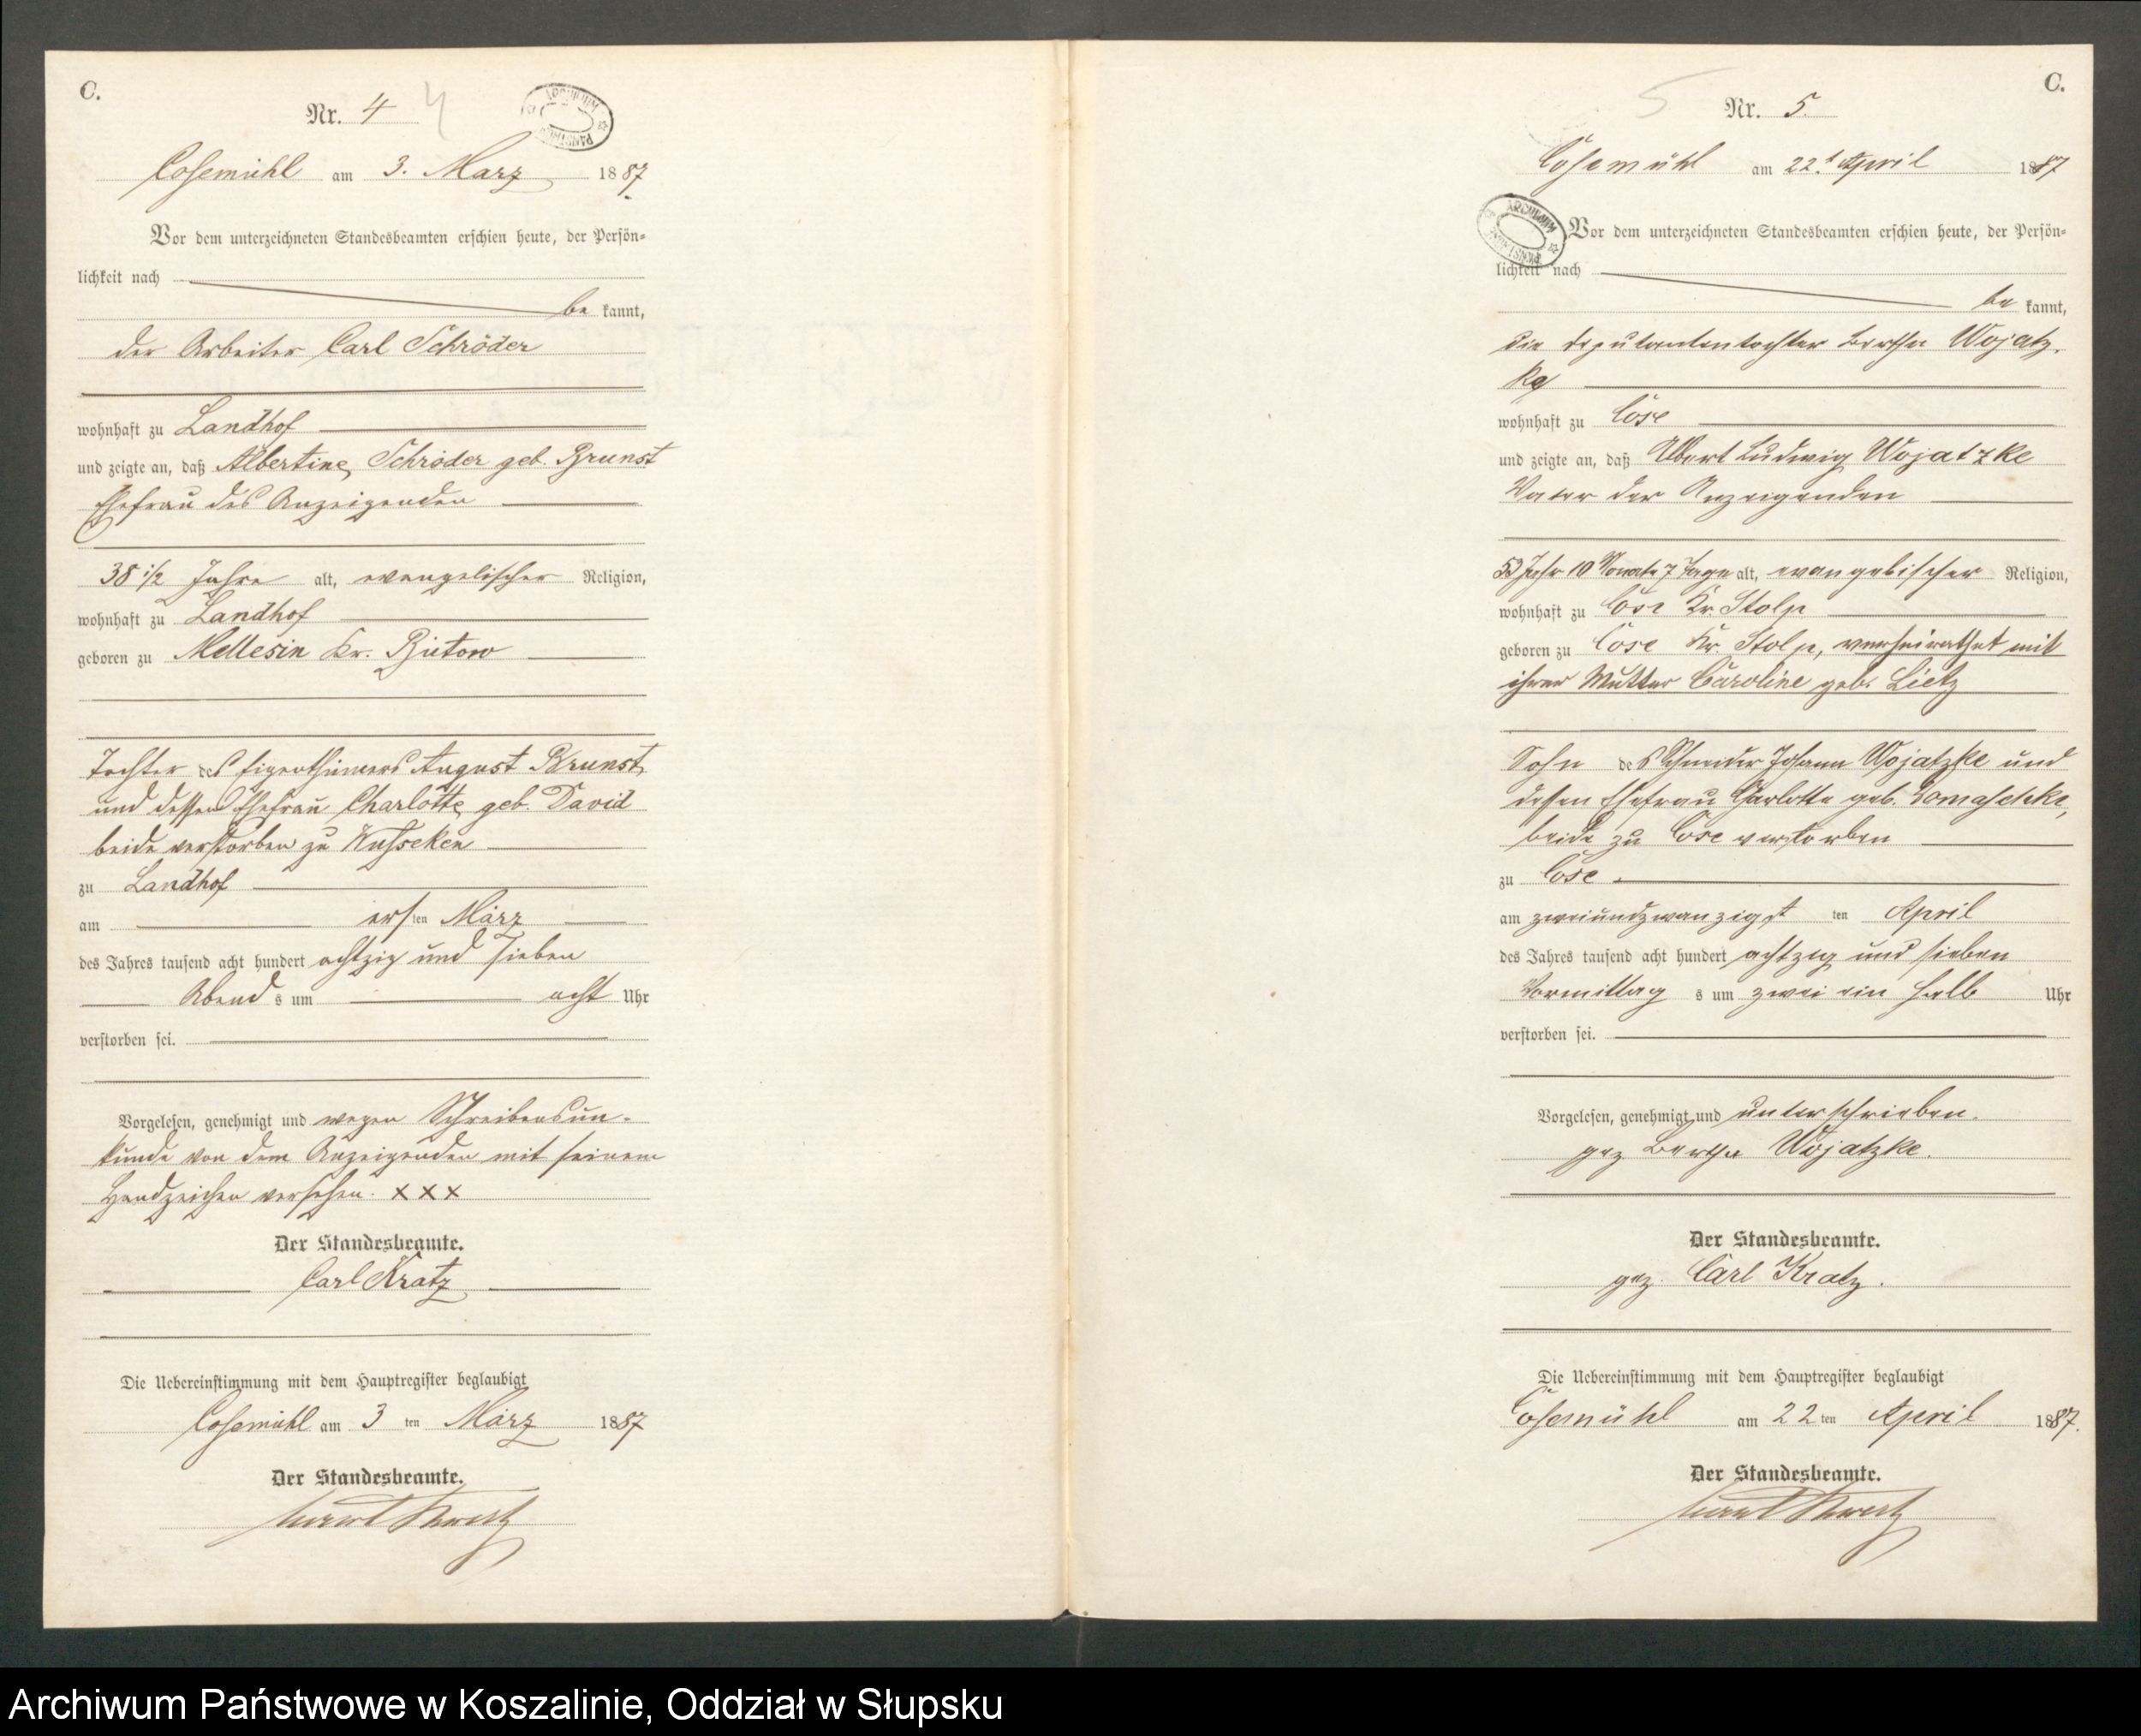 C.
Nr. 4 4
Cosemühl am 3. März 1887
Vor dem unterzeichneten Standesbeamten erschien heute, der Persön-
lichkeit nach
be kannt,
der Arbeiter Carl Schröder
wohnhaft zu Landhof
und zeigte an, daß Albertine Schröder geb. Brunst
Ehefrau des Anzeigenden
38 1/2 Jahre alt, evangelischer Religion,
wohnhaft zu Landhof
geboren zu Mellesin Kr. Bütow
Tochter des Eigenthümers August Brunst
und dessen Ehefrau Charlotte geb. David
beide verstorben zu Wusseken
zu Landhof
am ersten März
des Jahres tausend acht hundert achtzig und sieben
Abend s um acht Uhr
verstorben sei.
Vorgelesen, genehmigt und wegen Schreibensun-
kunde von dem Anzeigenden mit seinem
Handzeichen versehen. XXX
Der Standesbeamte.
Carl Kratz
Die Uebereinstimmung mit dem Hauptregister beglaubigt
Cosemühl am 3 ten März 1887
Der Standesbeamte.
C.
5 Nr. 5.
Cosemühl am 22. April 1887
Vor dem unterzeichneten Standesbeamten erschien heute, der Persön-
lichkeit nach
be kannt,
die Deputantentochter Bertha Wojatz-
ke
wohnhaft zu Cose
und zeigte an, daß Albert Ludwig Wojatzke
Vater der Anzeigenden
53 Jahr 10 Monate 7 Tage alt, evangelischer Religion,
wohnhaft zu Cose Kr. Stolp
geboren zu Cose Kr. Stolp, verheirathet mit
ihrer Mutter Caroline geb. Lietz
Sohn des Schneider Johann Wojatzke und
dessen Ehefrau Charlotte geb. Domaschke,
beide zu Cose verstorben
zu Cose.
am zweiundzwanzigst ten April
des Jahres tausend acht hundert achtzig und sieben
Vormittag s um zwei ein halb Uhr
verstorben sei.
Vorgelesen, genehmigt und unterschrieben.
gez Bertha Wojatzke.
Der Standesbeamte.
gez. Carl Kratz.
Die Uebereinstimmung mit dem Hauptregister beglaubigt
Cosemühl am 22 ten April 1887.
Der Standesbeamte.
Archiwum Państwowe w Koszalinie, Oddział w Słupsku